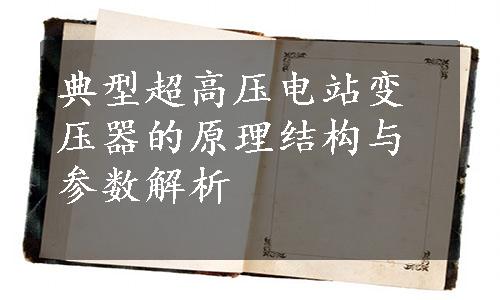 典型超高压电站变
压器的原理结构与
参数解析